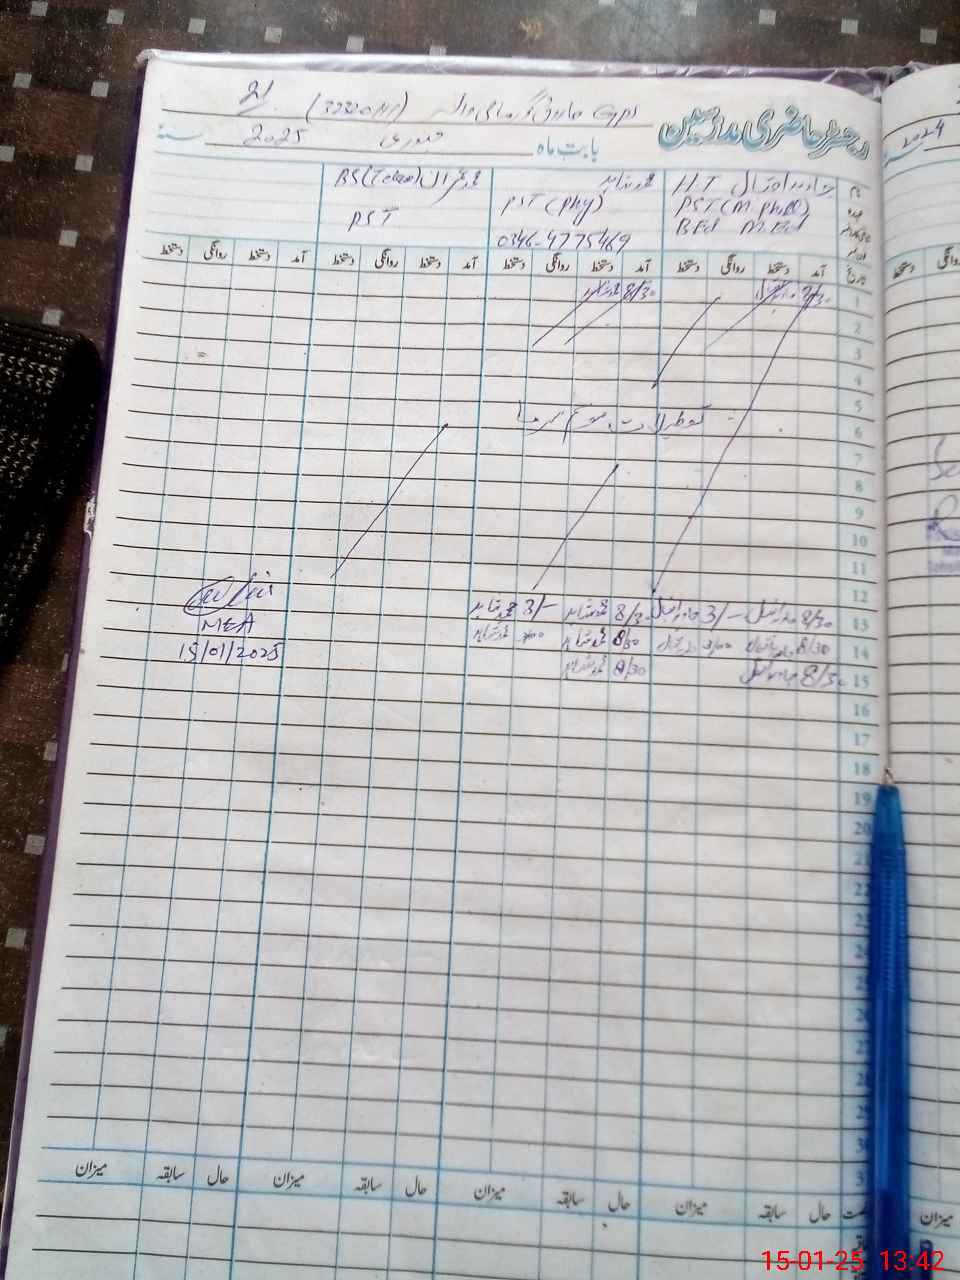 21
GPS
رجسٹر حاضری مدرسین
2024
بابت ماہ جنوری 2025 سنہ
جاوید اقبال H.T
PST (M.Phill)
B.Ed M.Ed
محمد شاہد
PST (Phy)
0346-4775469
محمد عمران BS(
PST
نام
تاریخ
آمد دستخط روانگی دستخط آمد دستخط روانگی دستخط آمد دستخط روانگی دستخط آمد دستخط روانگی دستخط
دستخط
1 8/30 جاوید اقبال 8/30 محمد شاہد
2
3
4
5
تعطیلات موسم سرما
6
7
8
9
10
11
12
13 8/30 جاوید اقبال 3/- جاوید اقبال 8/30 محمد شاہد 3/- محمد شاہد
14 8/30 جاوید اقبال 3/00 جاوید اقبال 8/30 محمد شاہد 3/00 محمد شاہد
15 8/30 جاوید اقبال 8/30 محمد شاہد
MEA
15/01/2025
16
17
18
19
20
21
22
23
24
حال سابقہ میزان حال سابقہ میزان حال سابقہ میزان حال سابقہ میزان
میزان
15-01-25 13:42